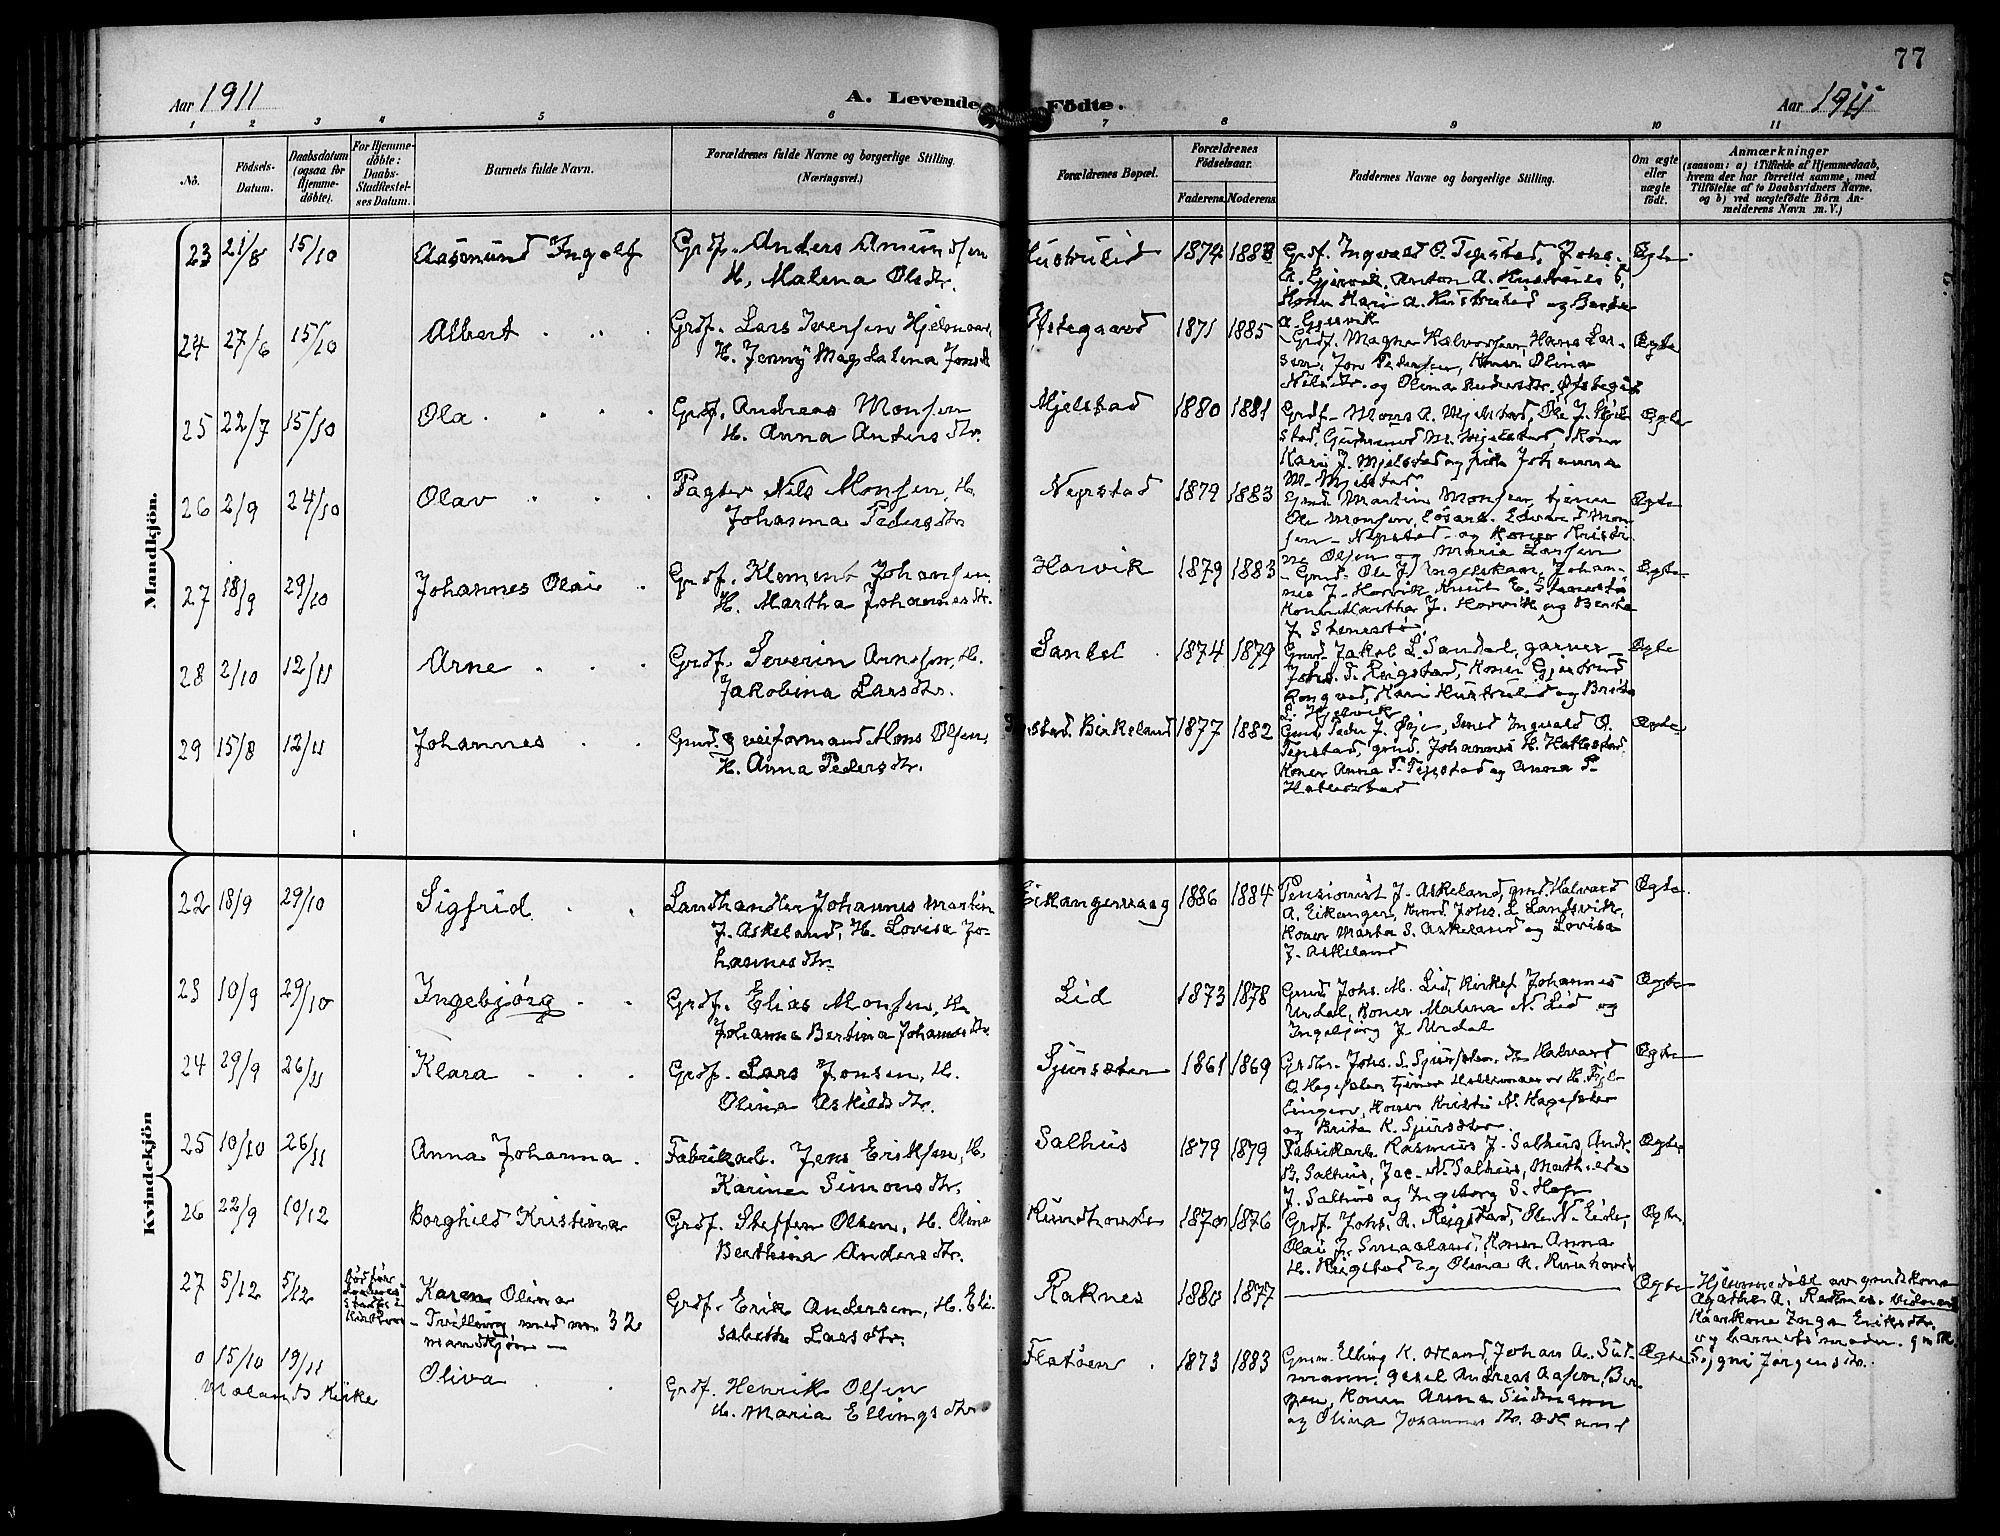 77
Aar 1911
A. Levende Födte.
Aar 1911
1 2 3 4 5 6 7 8 9 10 11
No.
Födsels-Datum.
Daabsdatum (ogsaa for Hjemme-döbte).
For Hjemme-döbte: Daabs-Stadfæstel-ses Datum.
Barnets fulde Navn.
Forældrenes fulde Navne og borgerlige Stilling.
(Næringsvei.)
Forældrenes Bopæl.
Forældrenes Födselsaar.
Faderens. Moderens.
Faddernes Navne og borgerlige Stilling.
Om ægte eller uægte födt.
Anmærkninger
(saasom: a) i Tilfælde af Hjemmedaab,
hvem der har forrettet samme, med
Tilföielse af to Daabsvidners Navne,
og b) ved uægtefödte Börn An-
melderens Navn m. V.)
Mandkjön.
23 21/8 15/10 Aasmund Ingolf Grdf. Anders Amundsen
H. Malena Olsdtr.
Hustrulid 1874 1883 Ægte
24 27/6 15/10 Albert Grdf. Lars Iversen Hjelmaas,
H. Jenny Magdalena Jonsdtr
Øfstegaard 1871 1885 Grdf. Magne Halvorsen, Hans Lar-
sen, Jon Pedersen, Koner Olina
Nilsdtr. og Olina Andersdtr. Øfstegrd Ægte
25 22/7 15/10 Ola Grdf. Andreas Monsen
H. Anna Andersdtr.
Mjelstad 1880 1881 Grdf. Mons A. Mjelstad, Ole J. Mjel-
stad, Gudmund M. Mjelstad, Koner
Kari J. Mjelstad og pike Johanna
M. Mjelstad Ægte
26 2/9 24/10 Olav Pagter Nils Monsen, H.
Johanna Pedersdtr
Neprstad 1879 1883 Grmd. Martin Monsen, tjener
Ole Monsen, Løsarb. Edvard Mon
sen og Koner Kristi
ne Olsen og Maria Larsen Ægte
27 18/9 29/10 Johannes Olai Grdf. Klement Johansen
H. Martha Johannesdtr.
Horvik 1879 1883 Grmd. Ole J. Ingelskam, Johan-
nes J. Horvik Knut E. Stenestø
Koner Martha J. Horvik og Berta
J. Stenestø Ægte
28 2/10 12/11 Arne Grdf. Severin Arnesen, H.
Jakobina Larsdtr.
Sandal 1874 1879 Grmd. Jakob L. Sandal, garver
Johs. T. Reigstad, Koner Gjertrud
Rongved, Kari Hustrulid og Brita
L. Hjelvik Ægte
29 15/8 12/11 Johannes Grmd. & veiformand Mons Olsen,
H. Anna Pedersdtr.
Birkeland 1877 1882 Grmd. Peder J. Øvje, Smed Ingvald O.
Tepstad, grmd. Johannes H. Hatlestad
Koner Anna T. Tepstad og Anna P.
Hatlestad Ægte
Kvindekjön
22 18/9 29/10 Sigfrid Landhandler Johannes Martin
J. Askeland, H. Lovisa Jo-
hannesdtr.
Eikangervaag 1886 1884 Pensionist J. Askeland, grmd. Halvard
A. Eikanger, Grmd. Johs. L. Landsvik,
Koner Marta S. Askeland og Lovisa
J. Askeland Ægte
23 10/9 29/10 Ingebjørg Grdf. Elias Monsen, H.
Johanna Bertina Johansdtr.
Lid 1873 1878 Grmd. Johs. M. Lid, Kirkes. Johannes
Urdal, Koner Malena N. Lid og
Ingebjørg J. Urdal Ægte
24 29/9 26/11 Klara Grdf. Lars Jonsen, H.
Olina Askildsdtr.
Sjursæter 1861 1869 og Brita K. Sjursæter Ægte
25 10/10 26/11 Anna Johanna Fabrikarb. Jens Eriksen, H.
Karine Simonsdtr.
Salhus 1879 1879 Fabrikarb. Rasmus J. Salhus, Andr.
B. Salhus, Jac. N. Salhus, Mathilda
J. Salhus og Ingeborg S. Hope Ægte
26 22/9 10/12 Borghild Kristina Grdf. Steffen Olsen, H. Olina
Berthina Andersdtr.
Rundhovde 1870 1876 Grdf. Johs. A. Reigstad, Ole N. Eide,
Olai J. Smaaland, Koner Anna
H. Reigstad og Olina A. Rundhovde Ægte
27 5/12 5/12 død før
Daabens
Stadfæ-
Karen Olina
Tvilling med no. 32
mandkjøn
Grdf. Erik Andersen, H. Eli-
sabeth Larsdtr.
Raknes 1880 1877 Ægte Hjemmedøbt av grmdskone
Agathe A. Raknes. Vidner
Kaarkone Inga Eriksdtr.
og barnets moder. gmk
Signi Jørgensdtr.
0 15/10 19/11 Oliva Grdf. Henrik Olsen
H. Maria Ellingsdtr.
Mælands Kirke
Flatøen 1873 1883 Grmm. Elling K. Odland, Johan A. Sud-
mann, gesel Andreas Aasen, Ber-
gen, Koner Anna Sudmann
og Olina Johannesdtr. Odland Ægte